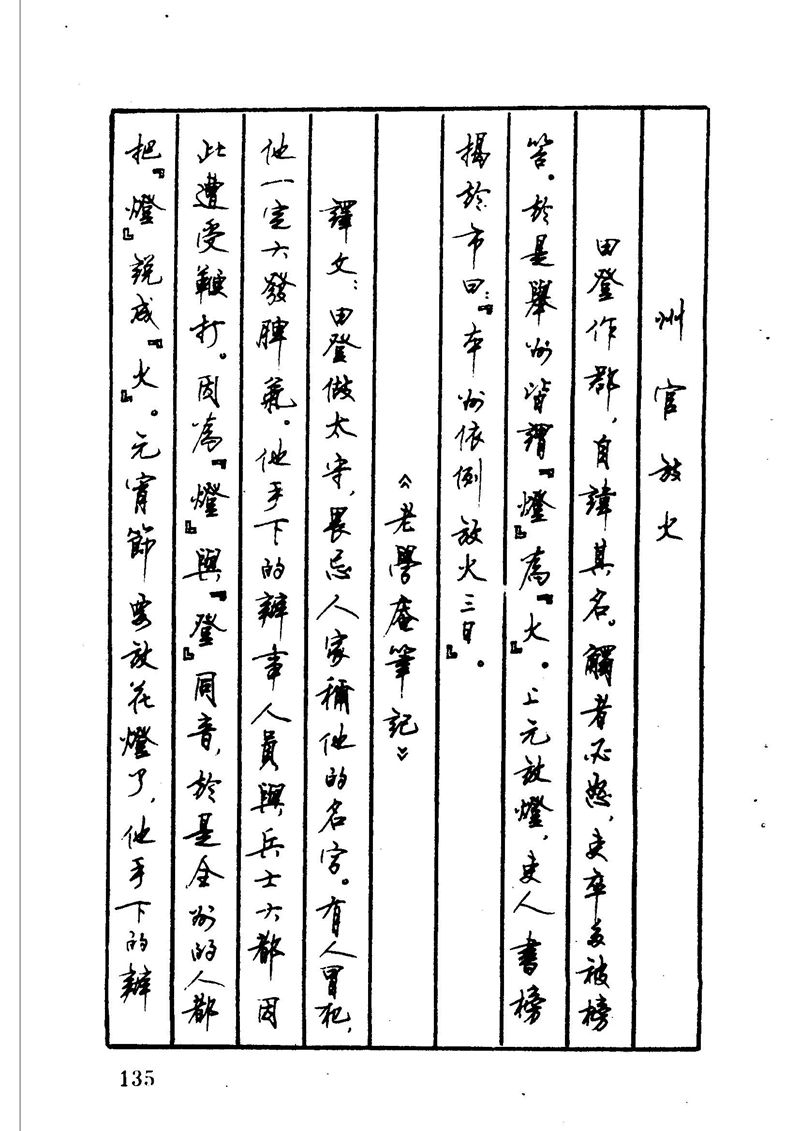 州官放火
田登作郡，自諱其名。觸者必怒，吏卒多被榜
笞。於是舉州皆謂『燈』為『火』。上元放燈，吏人書榜
揭於市曰：『本州依例放火三日』。
《老學庵筆記》
譯文：田登做太守，畏忌人家稱他的名字。有人冒犯，
他一定大發脾氣。他手下的辦事人員與兵士大都因
此遭受鞭打。因為『燈』與『登』同音，於是全州的人都
把『燈』說成『火』。元宵節要放花燈了，他手下的辦
135